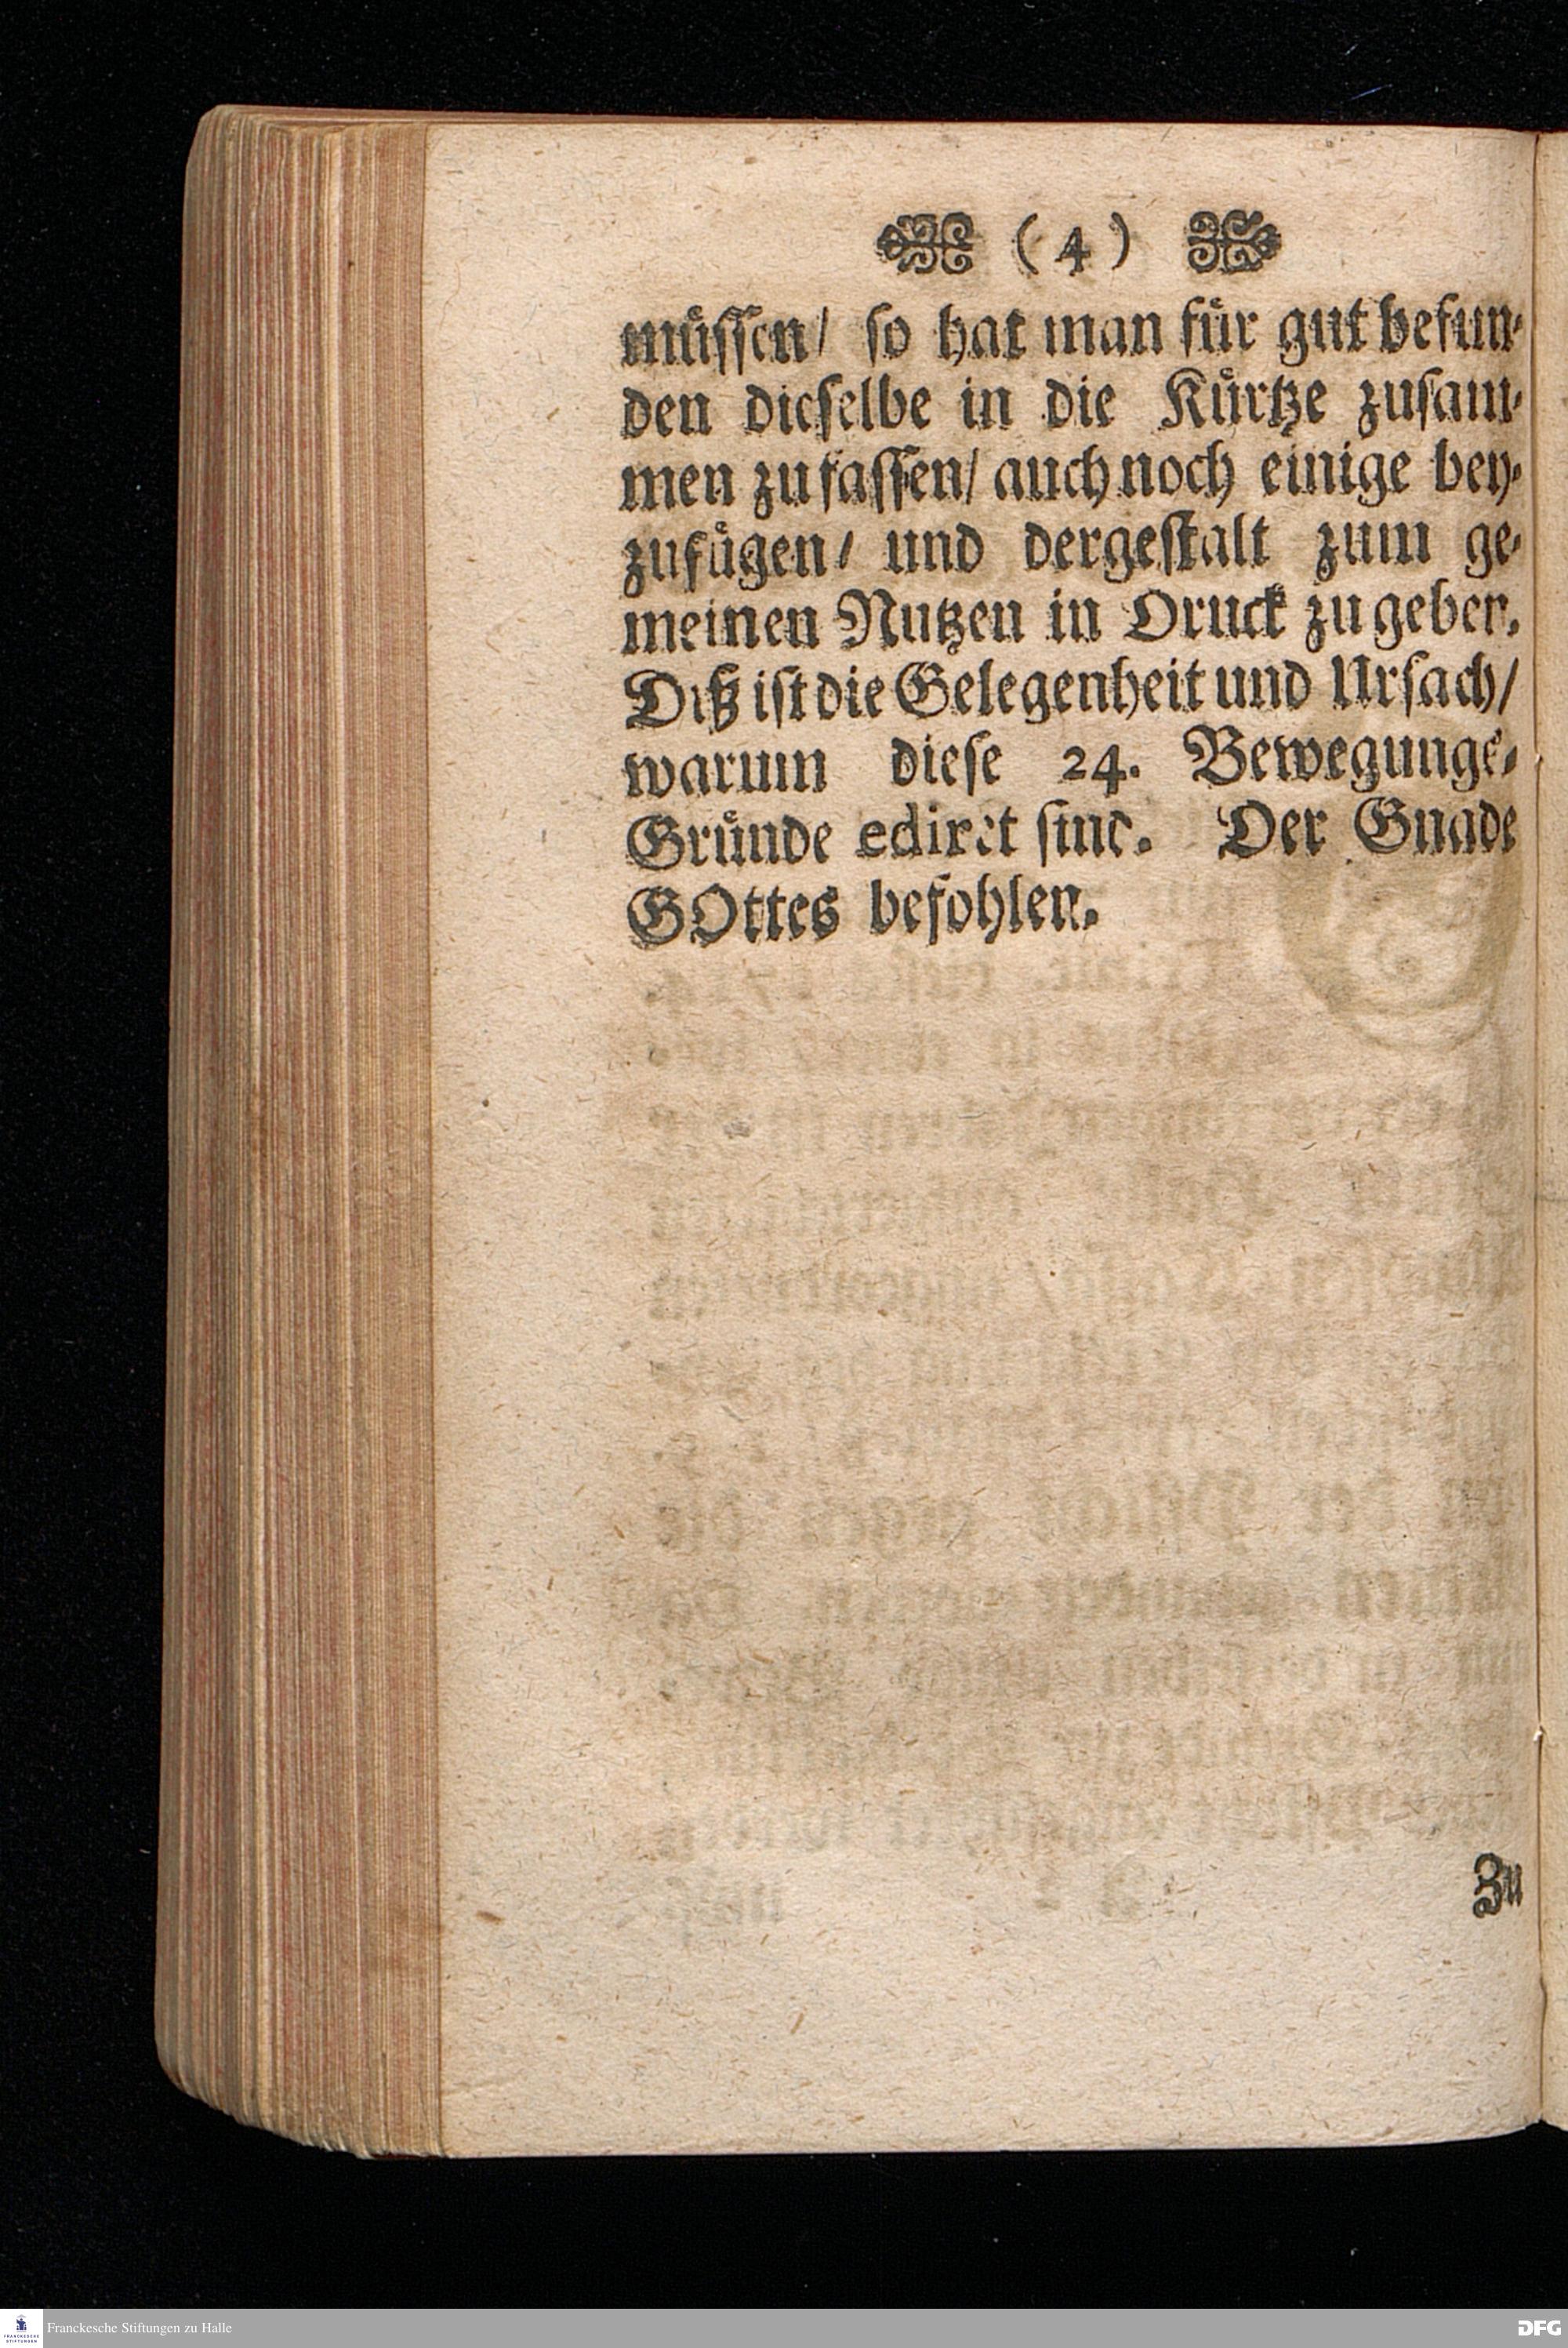 (4)
müssen/ so hat man für gut befun-
den dieselbe in die Kürtze zusam-
men zu fassen/ auch noch einige bey-
zufügen/ und dergestalt zum ge-
meinen Nutzen in Druck zu geben.
Diß ist die Gelegenheit und Ursach/
warum diese 24. Bewegungs-
Gründe ediret sind. Der Gnade
GOttes befohlen.
Zu
Franckesche Stiftungen zu Halle
DFG